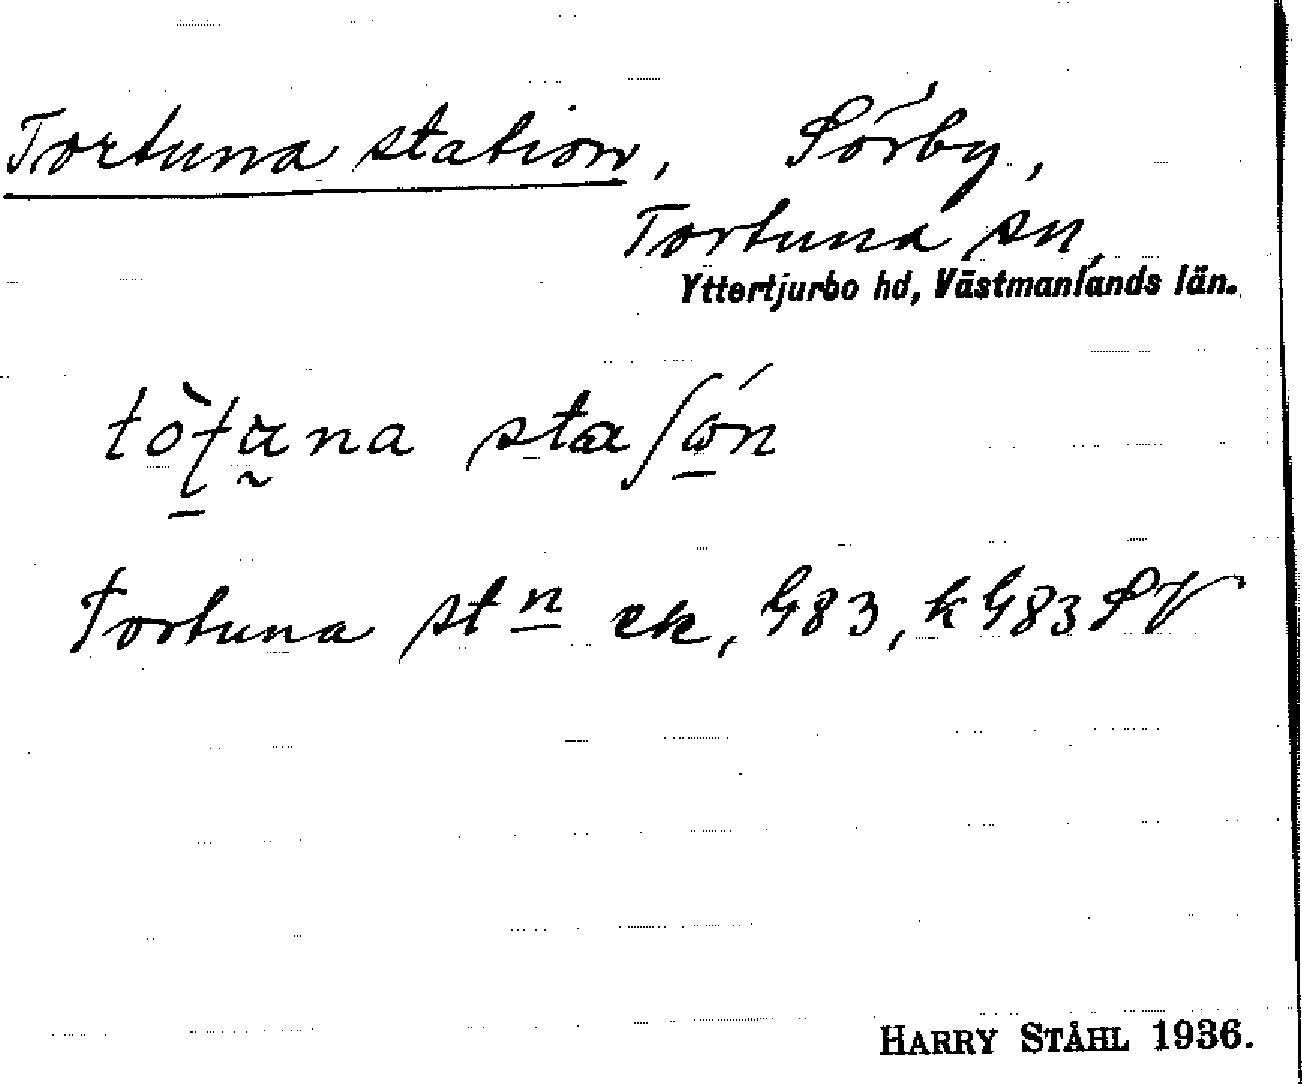 Tortuna station, Sörby,
Tortuna sn,
Yttertjurbo hd, Västmanlands län.
Tortuna stn ek, G83, k G83 SV
HARRY STÅHL 1936.